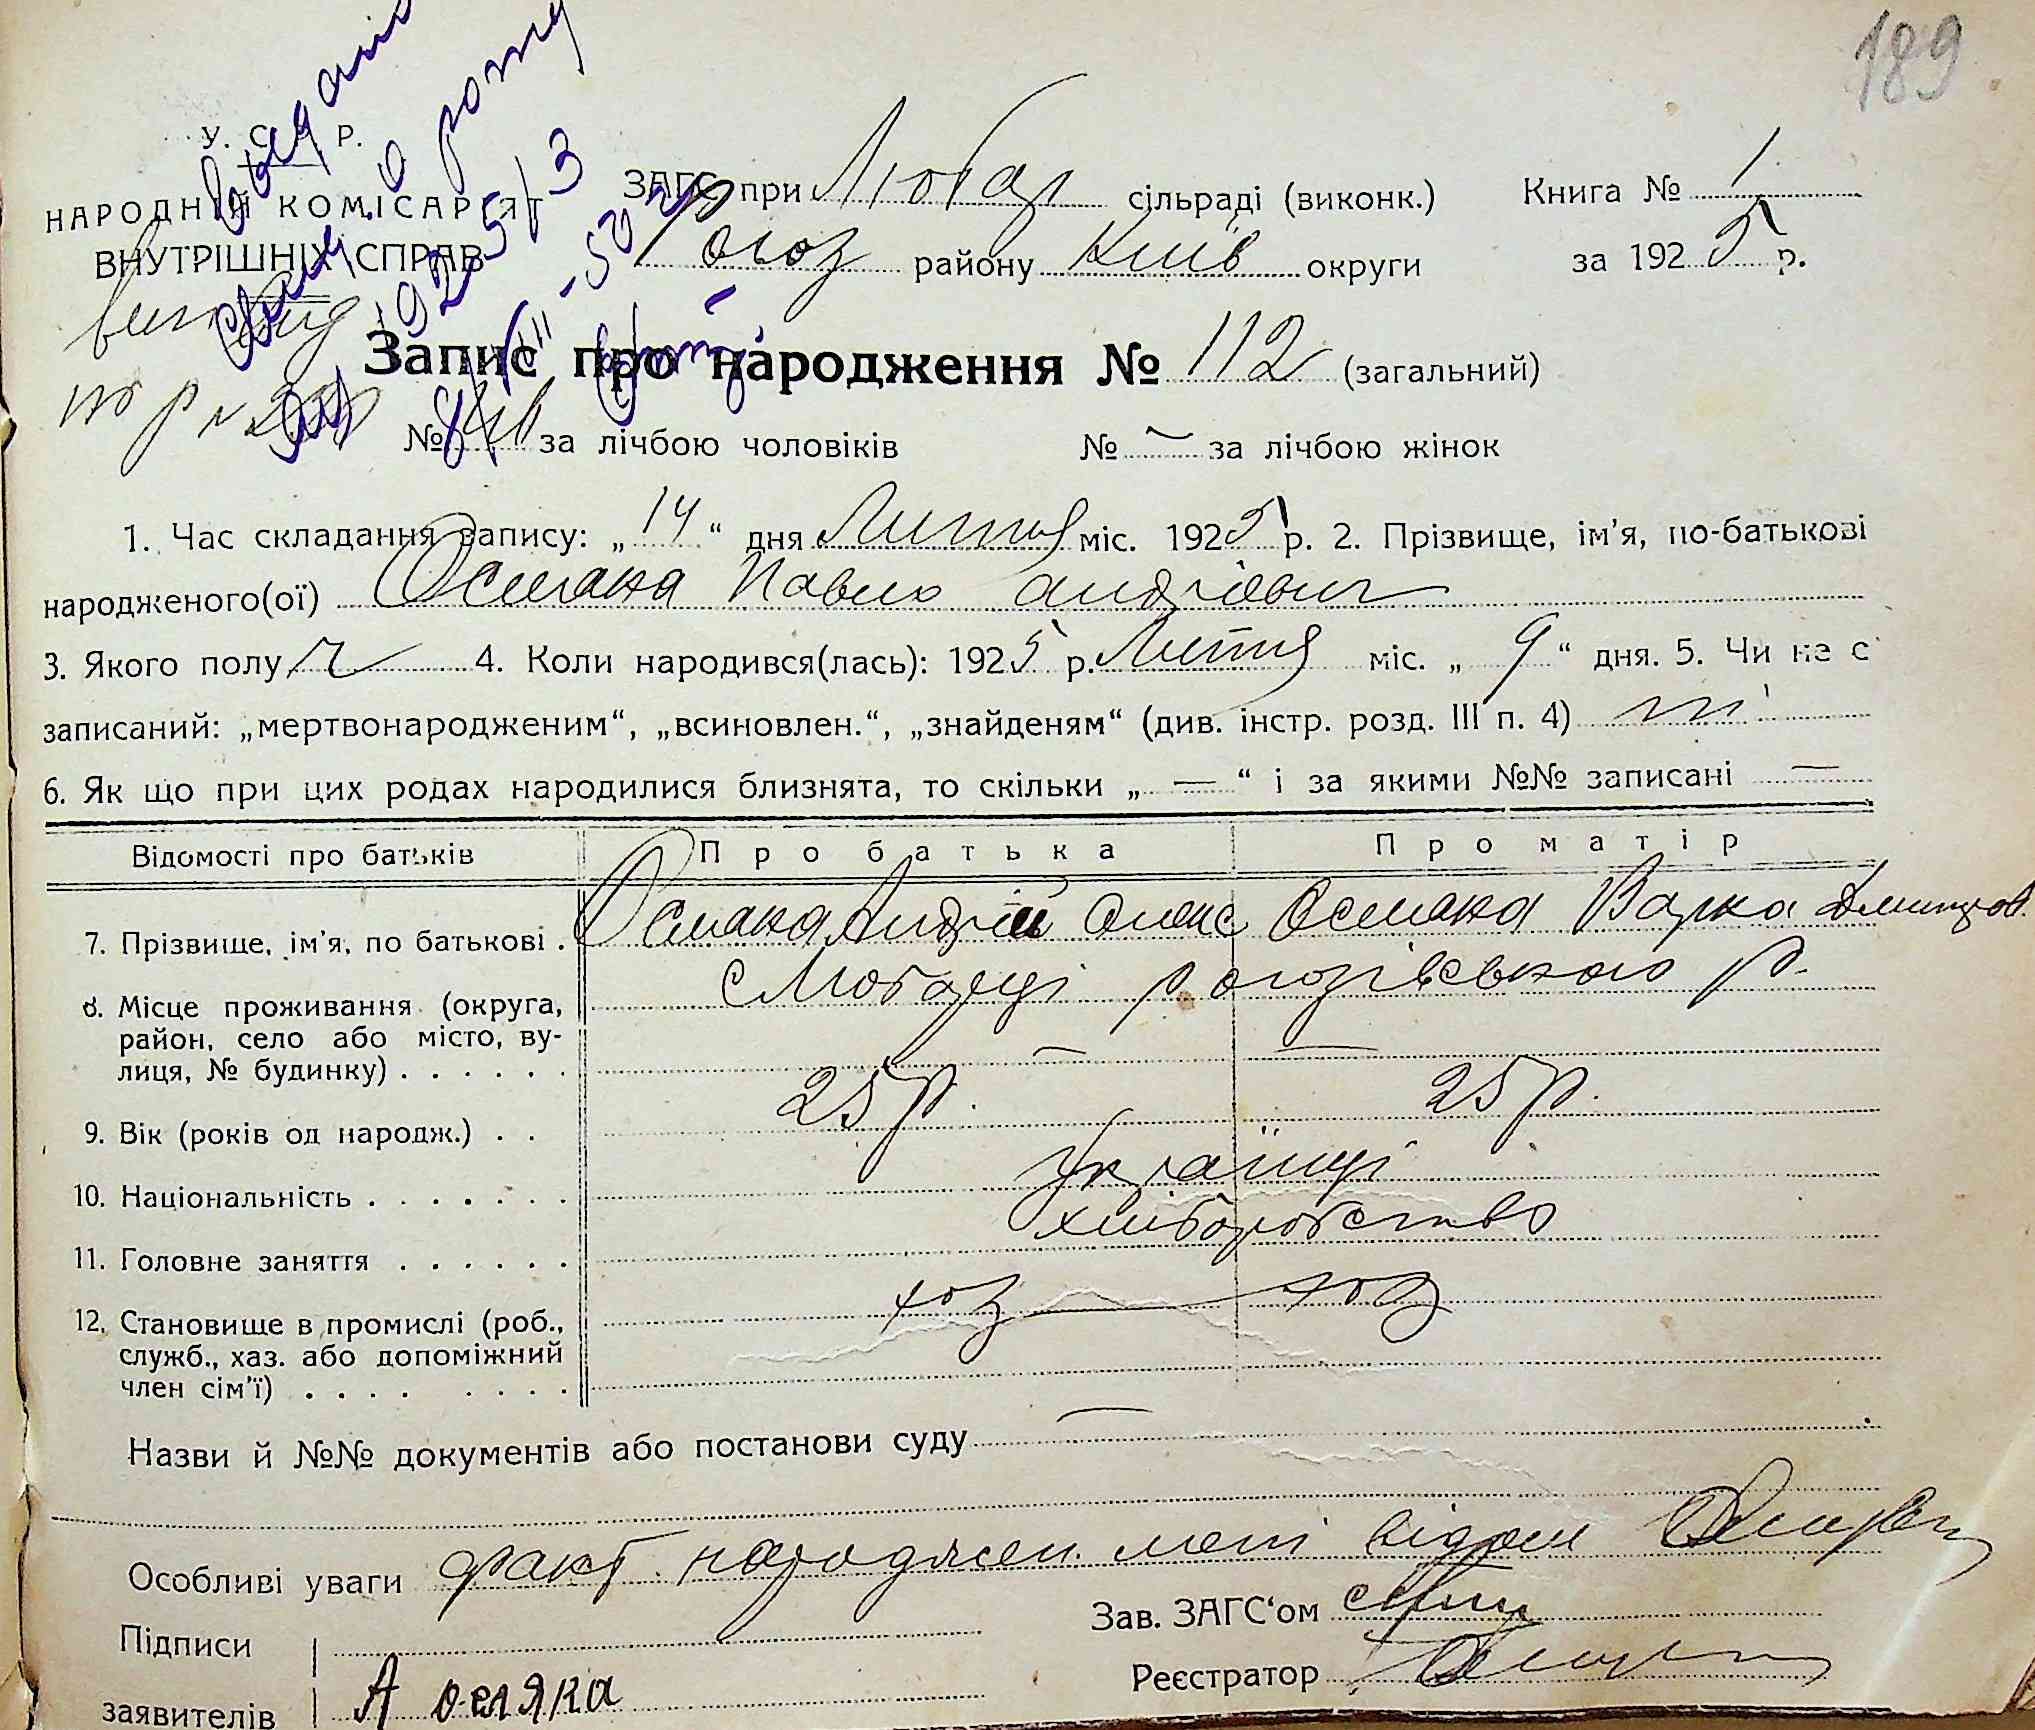 189
У. С. Р. Р.
НАРОДНІЙ КОМІСАРІЯТ
ВНУТРІШНІХ СПРАВ
ЗАГС при Любар сільраді (виконк.)
Рогоз району Київ округи
Книга № 1
за 1925 р.
Запис про народження № 112 (загальний)
№ за лічбою чоловіків № — за лічбою жінок
1. Час складання запису: „ 14 “ дня Лютня міс. 1925 р. 2. Прізвище, ім'я, по-батькові
народженого(ої) Осмака Павло Андрієвич
3. Якого полу ч 4. Коли народився(лась): 1925 р. Лютня міс. „ 9 “ дня. 5. Чи не є
записаний: „мертвонародженим“, „всиновлен.“, „знайденям“ (див. інстр. розд. III п. 4) ні
6. Як що при цих родах народилися близнята, то скільки „ — “ і за якими №№ записані —
Відомості про батьків Про батька Про матір
7. Прізвище, ім'я, по батькові . Осмака Андрій Олекс Осмака Варка Дмитров.
8. Місце проживання (округа, район, село або місто, вулиця, № будинку) . . . . . . с Любарці рогозівського р.
9. Вік (років од народж.) . . 25 р. 25 р.
10. Національність . . . . . . . Українці
11. Головне заняття . . . . . . хліборобство
12. Становище в промислі (роб., служб., хаз. або допоміжний член сім'ї) . . . . . . . . хоз — хоз
Назви й №№ документів або постанови суду —
Особливі уваги факт народжен. мені відом
Підписи
заявителів А осмяка
Зав. ЗАГС‘ом
Реєстратор